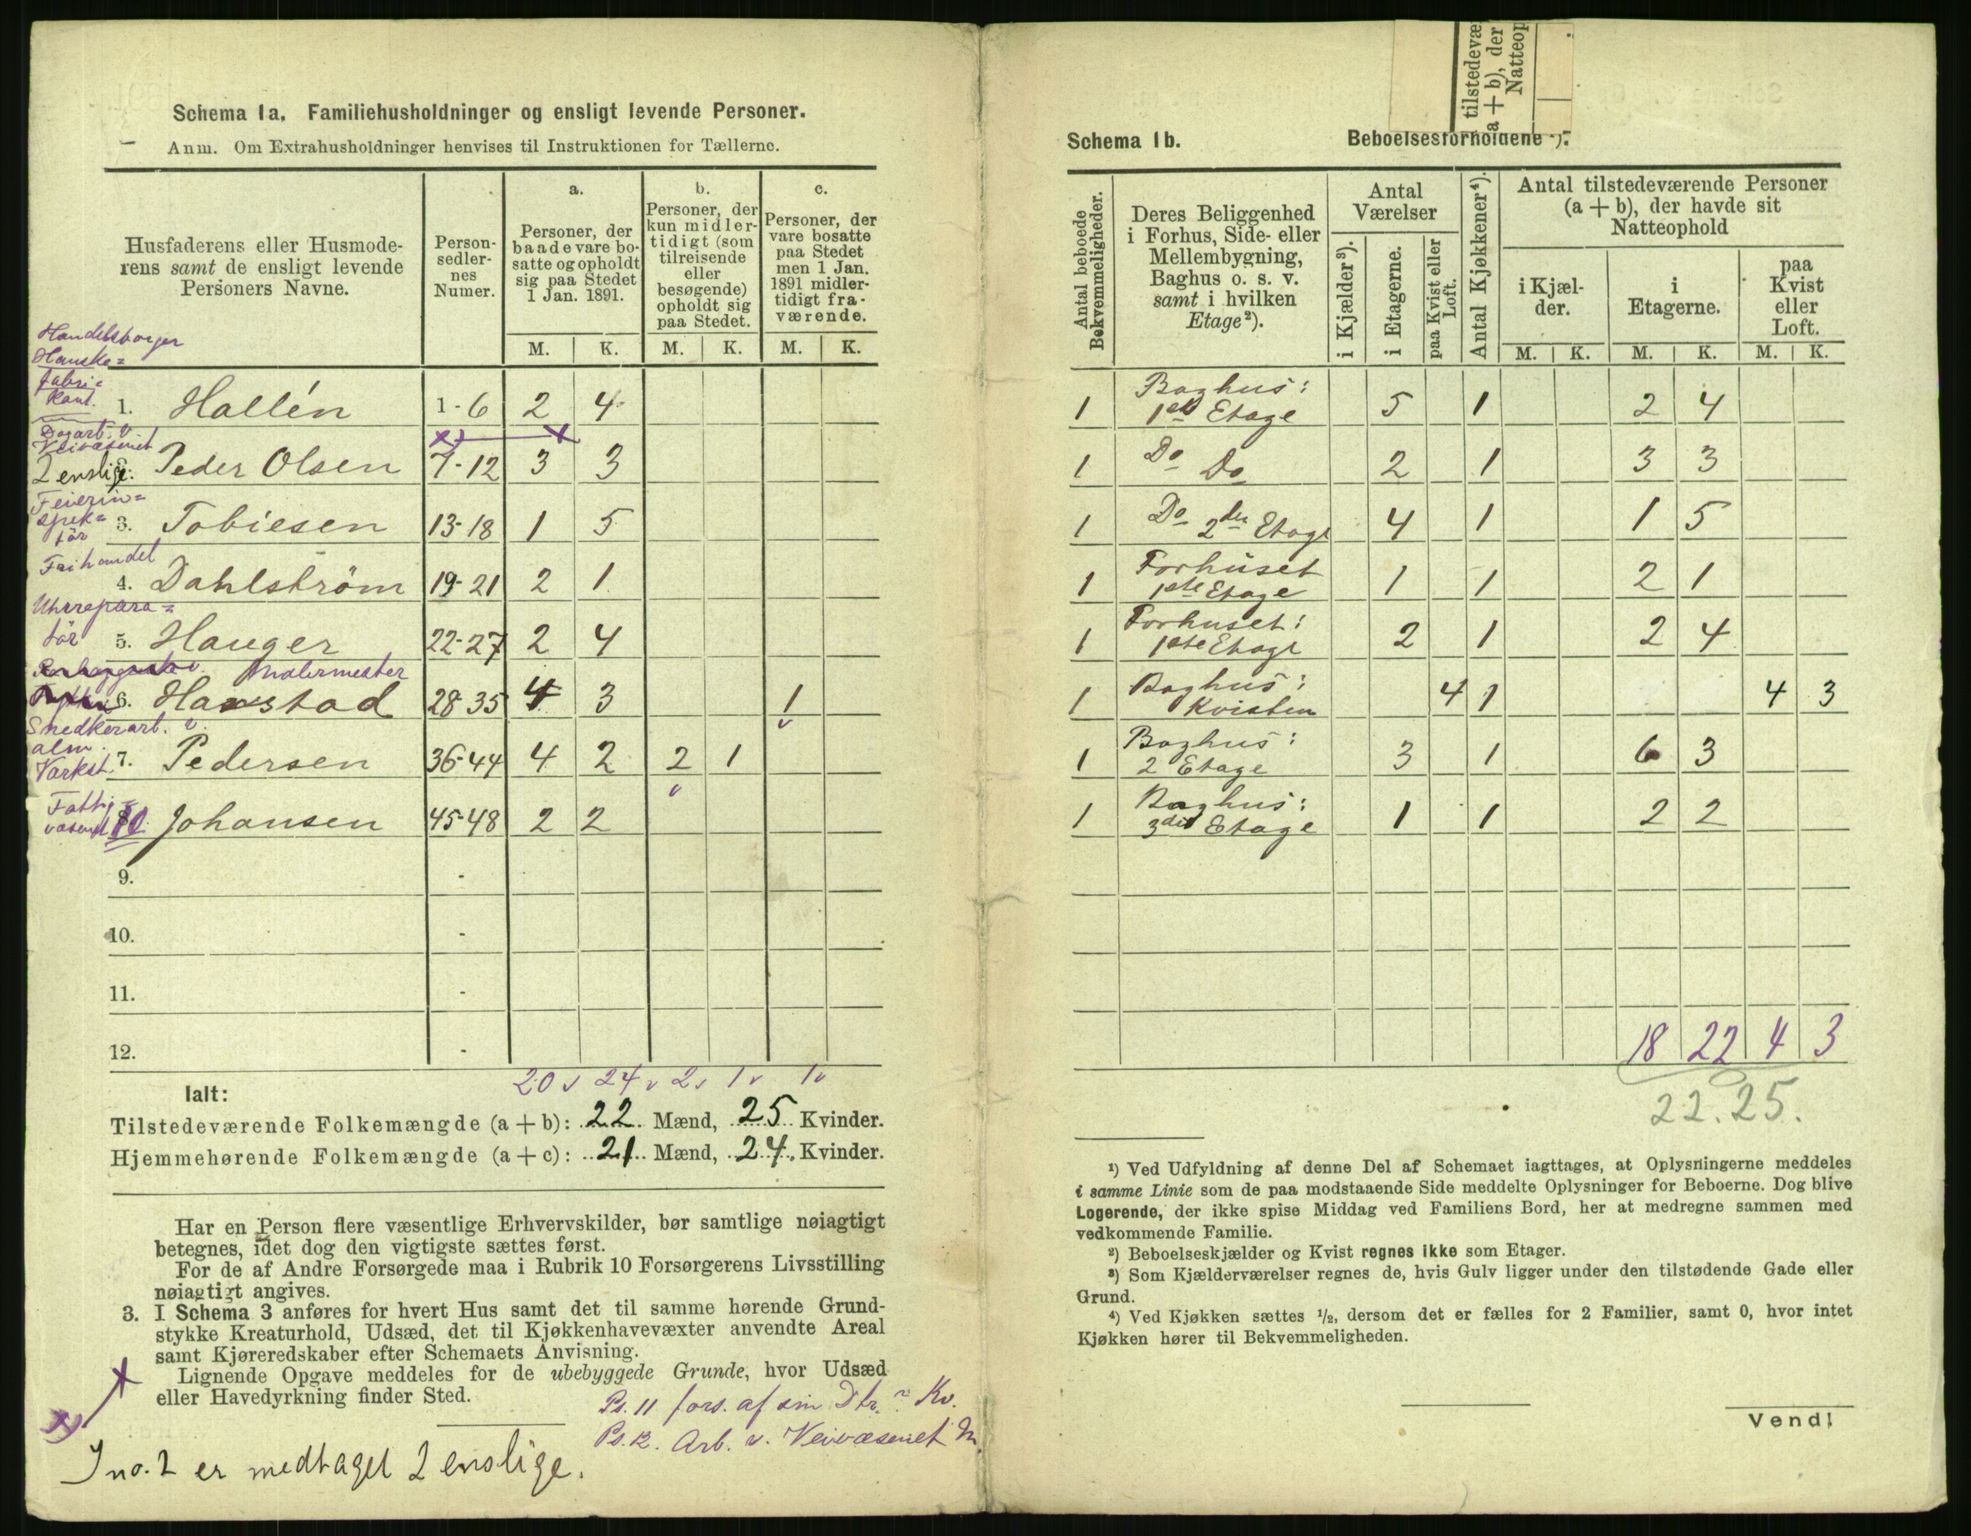 Schema 1a. Familiehusholdninger og ensligt levende Personer.
Anm. Om Extrahusholdninger henvises til Instruktionen for Tællerne.
Husfaderens eller Husmode-
rens samt de ensligt levende
Personers Navne.
Person-
sedler-
nes
Numer.
a.
Personer, der
baade vare bo-
satte og opholdt
sig paa Stedet
1 Jan. 1891.
b.
Personer, der
kun midler-
tidigt (som
tilreisende
eller
besøgende)
opholdt sig
paa Stedet.
c.
Personer, der
vare bosatte
paa Stedet
men 1 Jan.
1891 midler-
tidigt fra-
værende.
M. K. M. K. M. K.
Handelsborger
Hanske-
fabri-
kant.
1. Hallén 1-6 2 4
Dagarb. v.
Veivæsenet
2 enslige. Peder Olsen 7-12 3 3
Feierin-
spek-
tør
3. Tobiesen 13-18 1 5
Frihandel
4. Dahlström 19-21 2 1
Uhrrepara-
tör
5. Hauger 22-27 2 4
Malermester
6. Haxstad 28-35 4 3 1
Snedkerarb. v.
alm.
Værkst.
7. Pedersen 36-44 4 2 2 1
Fattig-
væsenet
Johansen 45-48 2 2
9. -
10. -
11. -
12. -
20 v 24 v 2 v 1 v 1 v
Ialt:
Tilstedeværende Folkemængde (a + b): 22 Mænd, 25 Kvinder.
Hjemmehørende Folkemængde (a + c): 21 Mænd, 24 Kvinder.
Har en Person flere væsentlige Erhvervskilder, bør samtlige nøiagtigt
betegnes, idet dog den vigtigste sættes først.
For de af Andre Forsørgede maa i Rubrik 10 Forsørgerens Livsstilling
nøiagtigt angives.
3. I Schema 3 anføres for hvert Hus samt det til samme hørende Grund-
stykke Kreaturhold, Udsæd, det til Kjøkkenhavevæxter anvendte Areal
samt Kjøreredskaber efter Schemaets Anvisning.
Lignende Opgave meddeles for de ubebyggede Grunde, hvor Udsæd
eller Havedyrkning finder Sted.
Ps. 11 fors. af sin Dtr. Kv.
Ps. 12. Arb. v. Veivæsenet M.
I no. 2 er medtaget 2 enslige.
tilstedevæ
a + b), der
Natteop
Schema 1b. Beboelsesforholdene ¹).
Antal beboede
Bekvemmeligheder.
Deres Beliggenhed
i Forhus, Side- eller
Mellembygning,
Baghus o. s. v.
samt i hvilken
Etage²).
Antal
Værelser
i Kjælder³).
i Etagerne.
paa Kvist eller
Loft.
Antal Kjøkkener⁴).
Antal tilstedeværende Personer
(a + b), der havde sit
Natteophold
i Kjæl-
der.
i
Etagerne.
paa
Kvist
eller
Loft.
M. K. M. K. M. K.
1 Baghus:
1ste Etage 5 1 2 4
1 Do Do 2 1 3 3
1 Do 2den Etage 4 1 1 5
1 Forhuset
1ste Etage 1 1 2 1
1 Forhuset:
1ste Etage 2 1 2 4
1 Baghus:
Kvisten 4 1 4 3
1 Baghus:
2 Etage 3 1 6 3
1 Baghus:
3die Etage 1 1 2 2
18 22 4 3
22. 25.
¹) Ved Udfyldning af denne Del af Schemaet iagttages, at Oplysningerne meddeles
i samme Linie som de paa modstaaende Side meddelte Oplysninger for Beboerne. Dog blive
Logerende, der ikke spise Middag ved Familiens Bord, her at medregne sammen med
vedkommende Familie.
²) Beboelseskjælder og Kvist regnes ikke som Etager.
³) Som Kjælderværelser regnes de, hvis Gulv ligger under den tilstødende Gade eller
Grund.
⁴) Ved Kjøkken sættes ¹/₂, dersom det er fælles for 2 Familier, samt 0, hvor intet
Kjøkken hører til Bekvemmeligheden.
Vend!